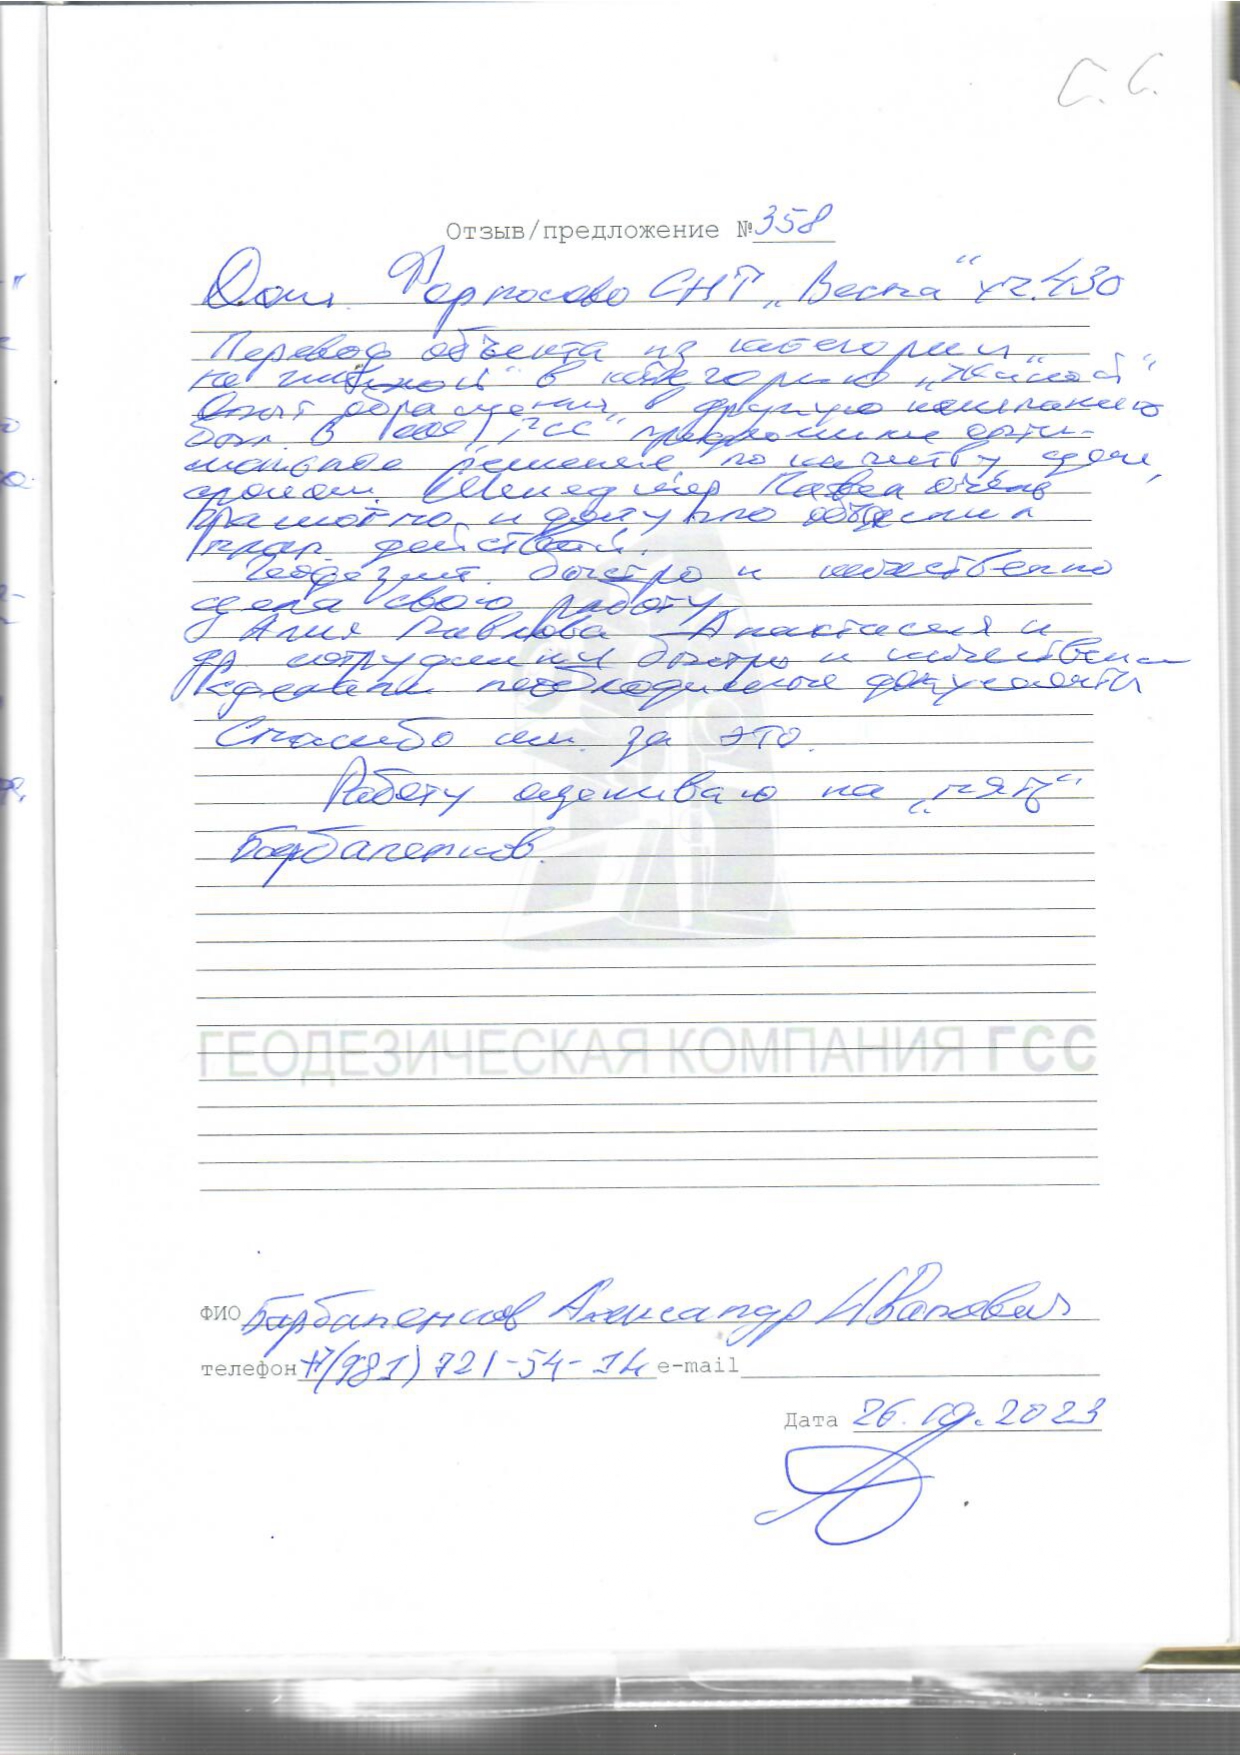 С. С.
Отзыв/предложение № 358
Дом. Форносово СНТ „Весна“ уч. 430
Перевод объекта из категории
не жилой“ в категорию „жилой“
Опыт обращения в другую компанию
был. В ООО „ГСС“ предложили опти-
мальное решение по качеству, цене,
срокам. Менеджер Павел очень
грамотно и доступно объяснил
план действий.
Геодезист быстро и качественно
сделал свою работу.
Павлова Анастасия и
др сотрудники быстро и качественно
сделали необходимые документы
Спасибо им. за это.
Работу оцениваю на „пять“
Барбаленков.
ГЕОДЕЗИЧЕСКАЯ КОМПАНИЯ ГСС
ФИО Барбаленков Александр Иванович
телефон +7(981) 721-54-14 e-mail
Дата 26.10.2023